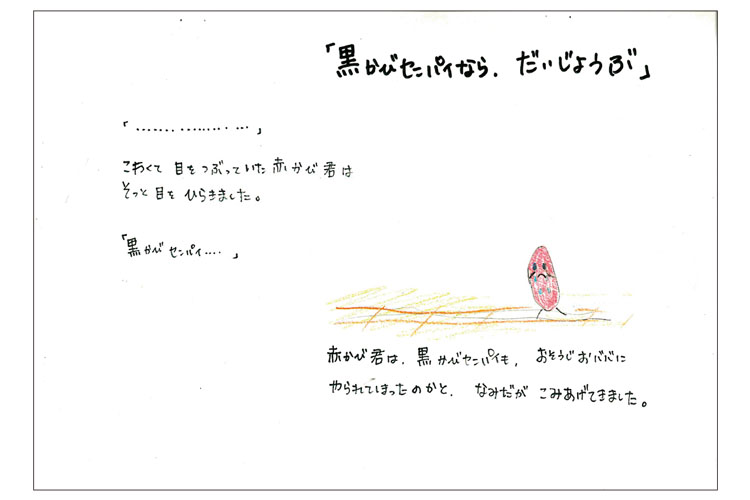 「黒かびセンパイなら、だいじょうぶ」
「………………」
こわくて目をつぶっていた赤かび君は
そっと目をひらきました。
「黒かびセンパイ‥‥」
赤かび君は、黒かびセンパイも、おそうじおババに
やられてしまったのかと、なみだがこみあげてきました。